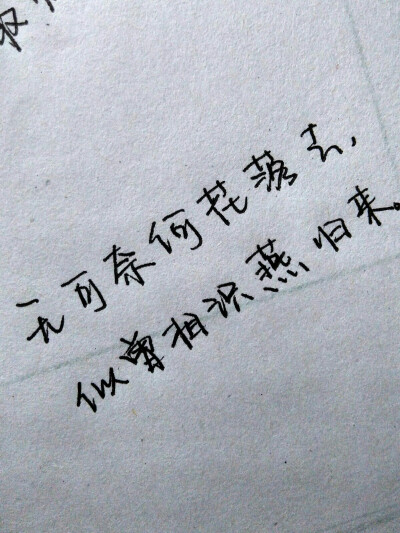 无可奈何花落去,
似曾相识燕归来。